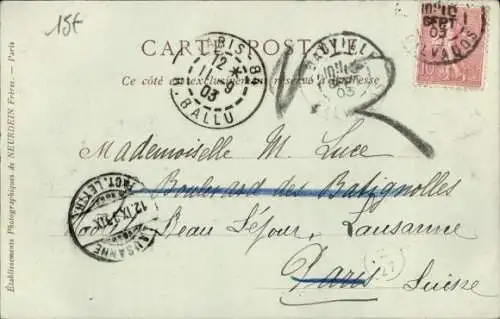 15€
CARTE POSTALE
Ce côté est exclusivement réservé à l'adresse
PARIS-84
12
9
03
R. BALLU
SEPT
03
SEPT
03
10
Mademoiselle M. Luce
Boulevard des Batignolles
Beau Séjour, Lausanne
Paris Suisse
LAUSANNE
12.IX.03
Établissements Photographiques de NEURDEIN Frères. — Paris